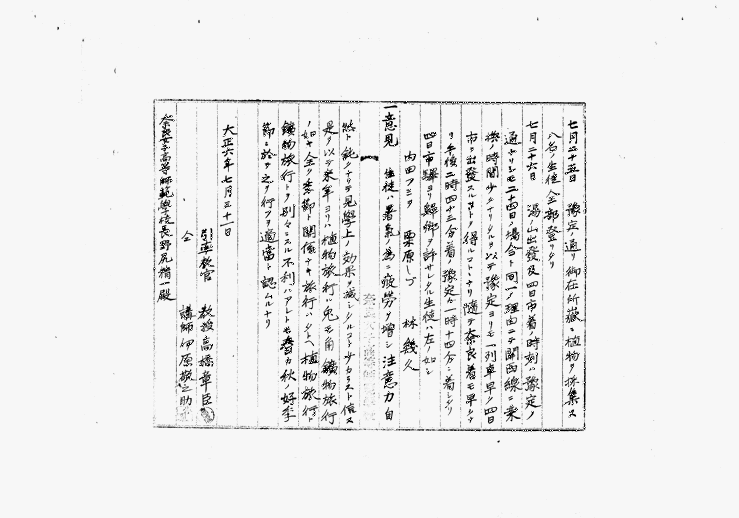 七月二十五日 豫定ノ通リ御在所嶽ニ植物ヲ採集ス
八名ノ生徒全部登レリ
七月二十六日 湯ノ山出發及四日市着ノ時刻ハ豫定ノ
通ナリシモ二十四日ノ場合ト同一ノ理由ニテ關西線ニ乘
換ノ時間少ナリシヲ以テ豫定ヨリモ一列車早ク四日
市ヲ出發スルコトヲ得ルコトトナリ隨テ奈良着モ早クナ
リ午後二時四十三分着ノ豫定ガ一時十四分ニ着シタリ
四日市驛ヨリ歸鄉ヲ許サレタル生徒ハ左ノ如シ
内田フミヲ 栗原しづ 林幾久
一意見 生徒ハ暑氣ノ爲ニ疲勞ヲ增シ注意力自
然ト鈍クナリテ見學上ノ効果ヲ減シタルコト少カラスト信ス
是ヲ以テ來年ヨリハ植物旅行ハ兎モ角鑛物旅行
ノ如キ全ク季節ト關係ナキ旅行ハタトヘ植物旅行ト
鑛物旅行トヲ別々ニスル不利ハアレトモ春カ秋ノ好季
節ニ於テ之ヲ行フヲ適當ト認ムルナリ
大正六年七月三十一日
引率教官 教授高橋章臣
仝 講師 原敬之助
奈良女子高等師範學校長野尻精一殿